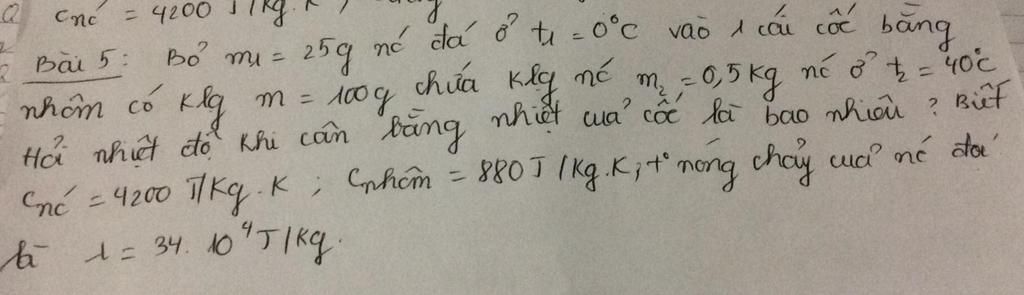 Cnć = 4200 J/kg.K ;
Bài 5: Bỏ m1 = 25g nć đá ở t1 = 0°C vào 1 cái cốc bằng
nhôm có klg m = 100g chứa klg nć m2 = 0,5kg nć ở t2 = 40°C
Hỏi nhiệt độ khi cân bằng nhiệt của cốc là bao nhiêu? Biết
Cnć = 4200 J/kg.K ; Cnhôm = 880J/kg.K; t° nóng chảy của nć đá
là λ = 34.10⁴J/kg.